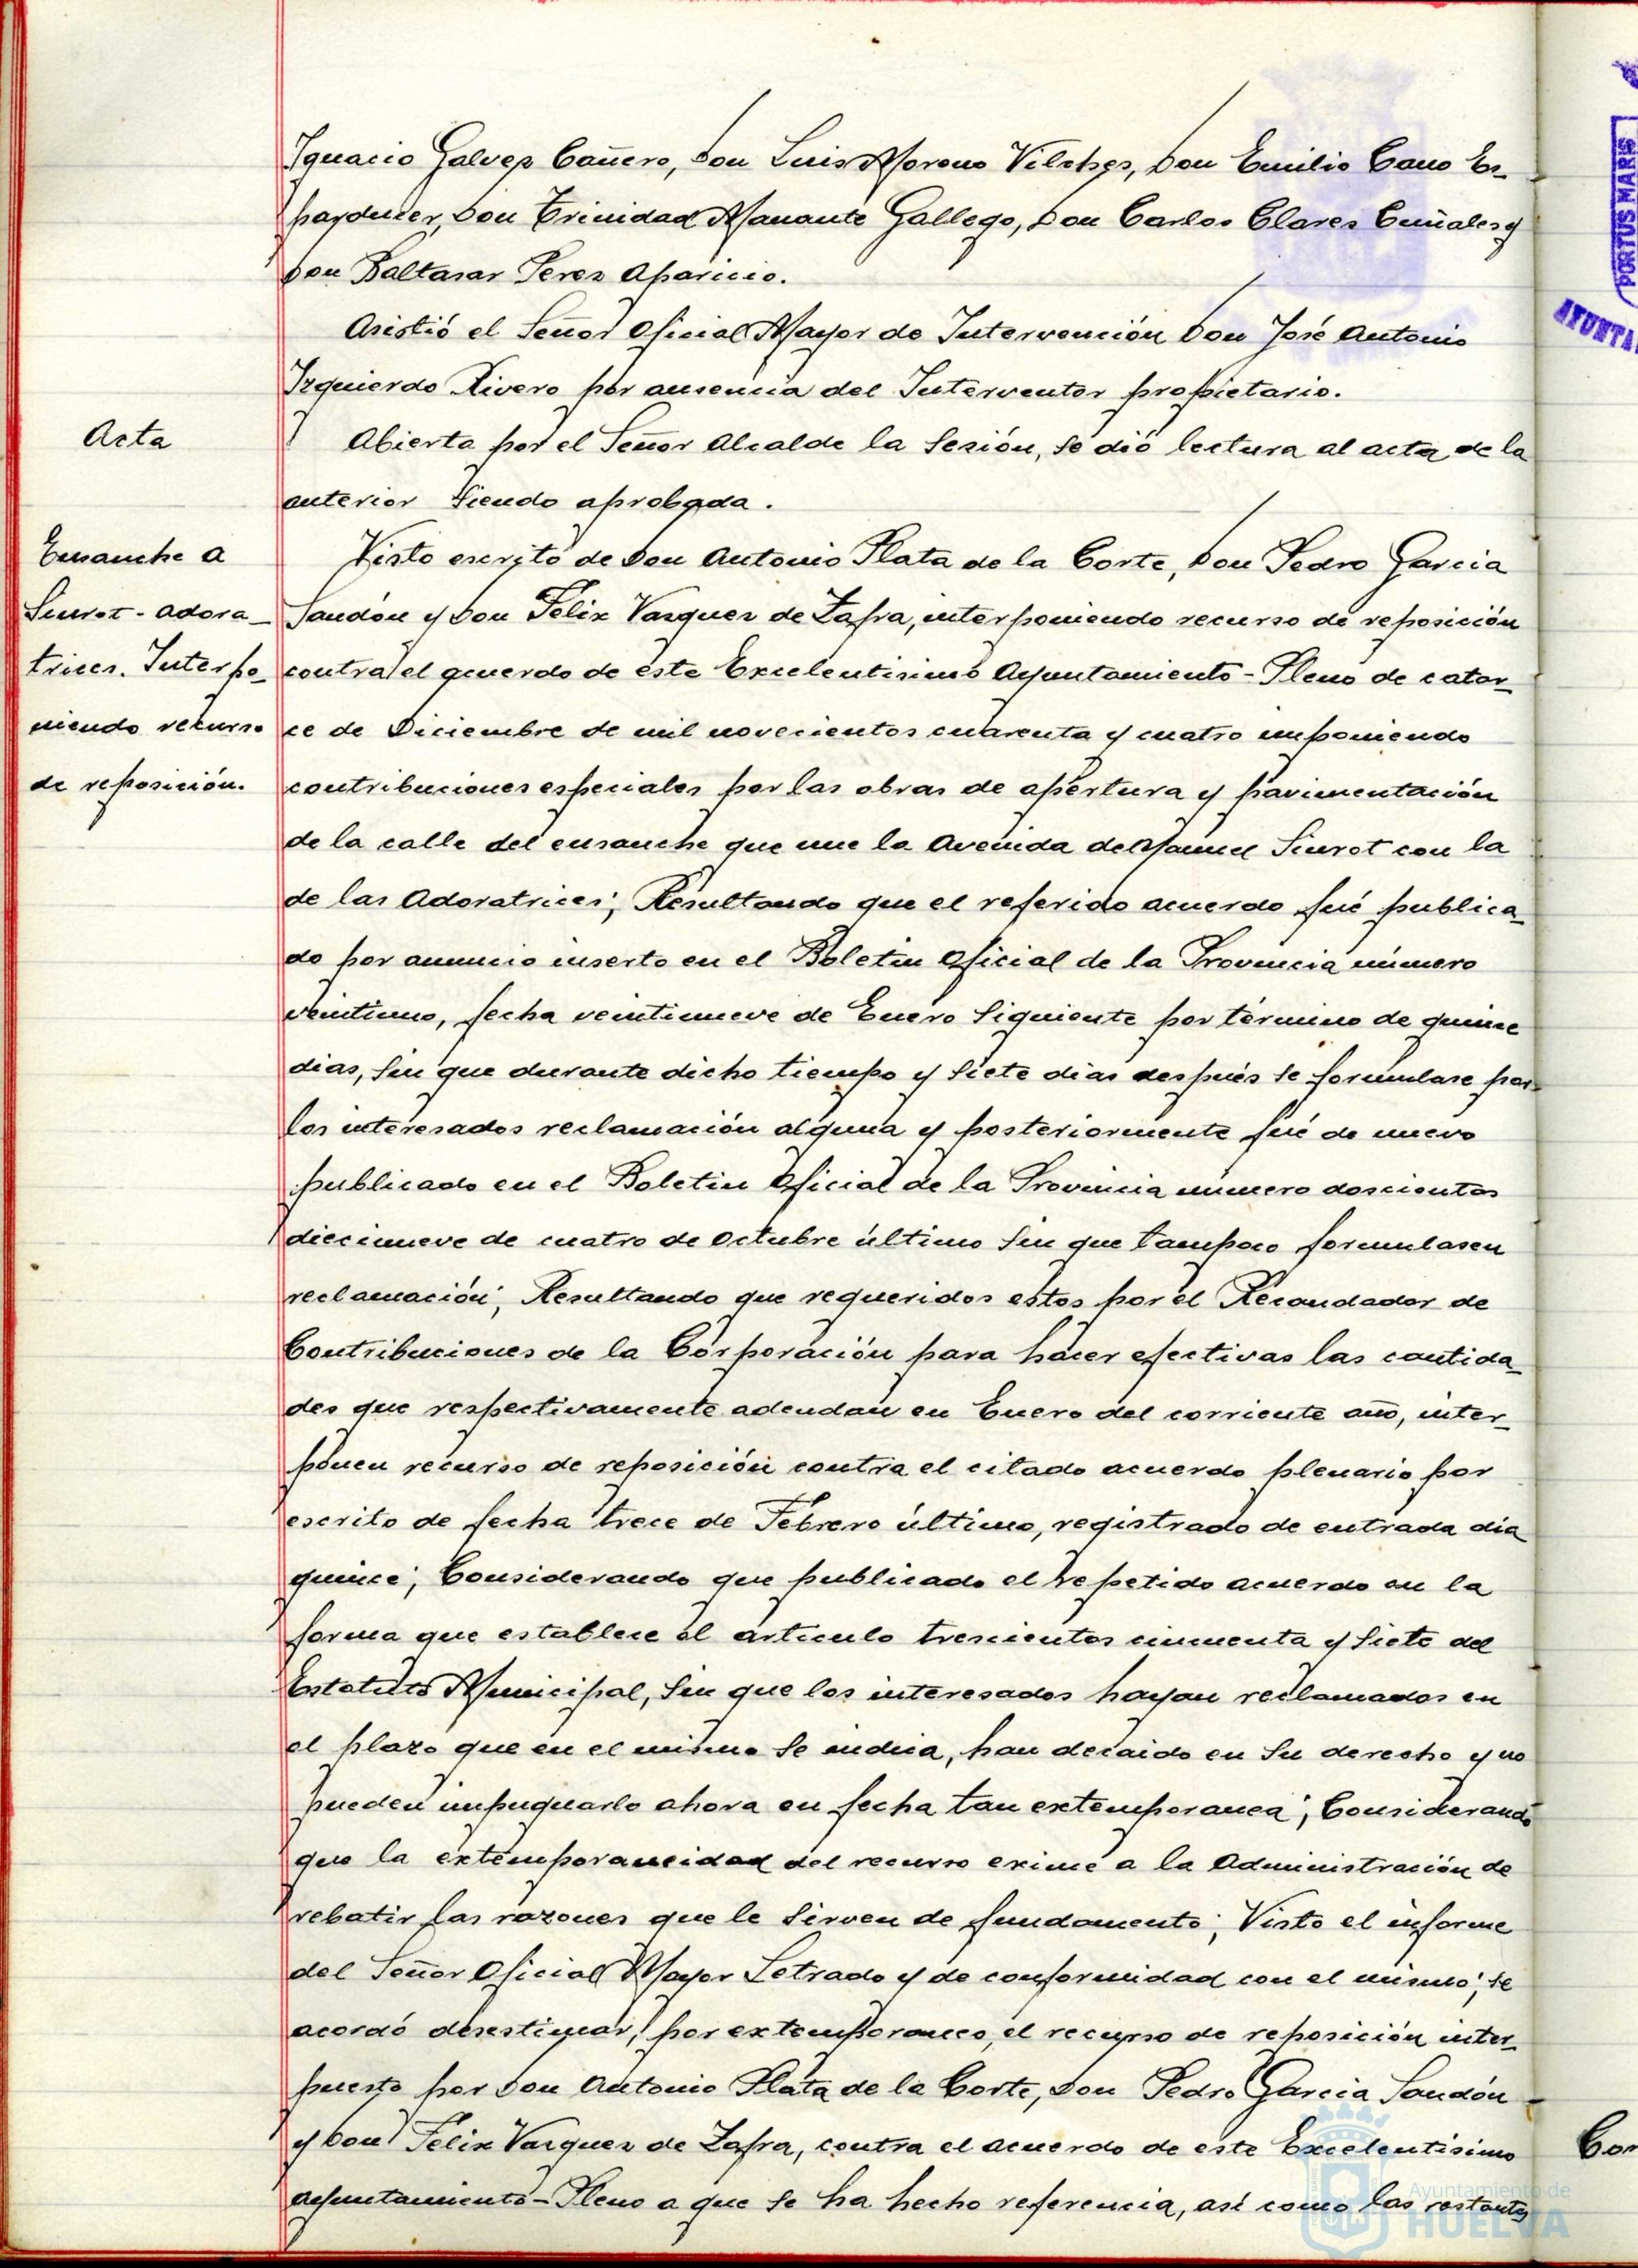 Ignacio Galvez Cañero, Don Luis Moreno Vilches, Don Emilio Cano Es-
parducer, Don Trinidad Manante Gallego, Don Carlos Clares Cuñales y
Don Baltasar Perez Aparicio.
Asistió el Señor Oficial Mayor de Intervención Don José Antonio
Izquierdo Rivero por ausencia del Interventor propietario.
Acta
Abierta por el Señor Alcalde la Sesión, se dió lectura al acta de la
anterior siendo aprobada.
Ensanche a
Siurot-adora-
trices. Interpo-
niendo recurso
de reposición.
Visto escrito de Don Antonio Plata de la Corte, Don Pedro Garcia
Sandón y Don Felix Vazquez de Zafra, interponiendo recurso de reposición
contra el acuerdo de este Excelentisimo Ayuntamiento-Pleno de cator-
ce de Diciembre de mil novecientos cuarenta y cuatro imponiendo
contribuciones especiales por las obras de apertura y pavimentación
de la calle del ensanche que une la Avenida de Manuel Siurot con la
de las Adoratrices; Resultando que el referido acuerdo fué publica-
do por anuncio inserto en el Boletin Oficial de la Provincia número
veintiuno, fecha veintinueve de Enero siguiente por término de quince
dias, sin que durante dicho tiempo y siete dias después se formulase por
los interesados reclamación alguna y posteriormente fué de nuevo
publicado en el Boletin Oficial de la Provincia número doscientos
diecinueve de cuatro de Octubre último sin que tampoco formulasen
reclamación; Resultando que requeridos estos por el Recaudador de
Contribuciones de la Corporación para hacer efectivas las cantida-
des que respectivamente adeudan en Enero del corriente año, inter-
ponen recurso de reposición contra el citado acuerdo plenario por
escrito de fecha trece de Febrero último, registrado de entrada dia
quince; Considerando que publicado el repetido acuerdo en la
forma que establece el articulo trescientos cincuenta y siete del
Estatuto Municipal, sin que los interesados hayan reclamados en
el plazo que en el mismo se indica, han decaido en su derecho y no
pueden impugnarlo ahora en fecha tan extemporanea; Considerando
que la extemporaneidad del recurso exime a la Administración de
rebatir las razones que le sirven de fundamento; Visto el informe
del Señor Oficial Mayor Letrado y de conformidad con el mismo; se
acordó desestimar, por extemporaneo, el recurso de reposición inter-
puesto por Don Antonio Plata de la Corte, Don Pedro Garcia Sandón
y Don Felix Vazquez de Zafra, contra el acuerdo de este Excelentisimo
Ayuntamiento-Pleno a que se ha hecho referencia, asi como las restantes
PORTUS MARIS
Ayuntamiento de
HUELVA